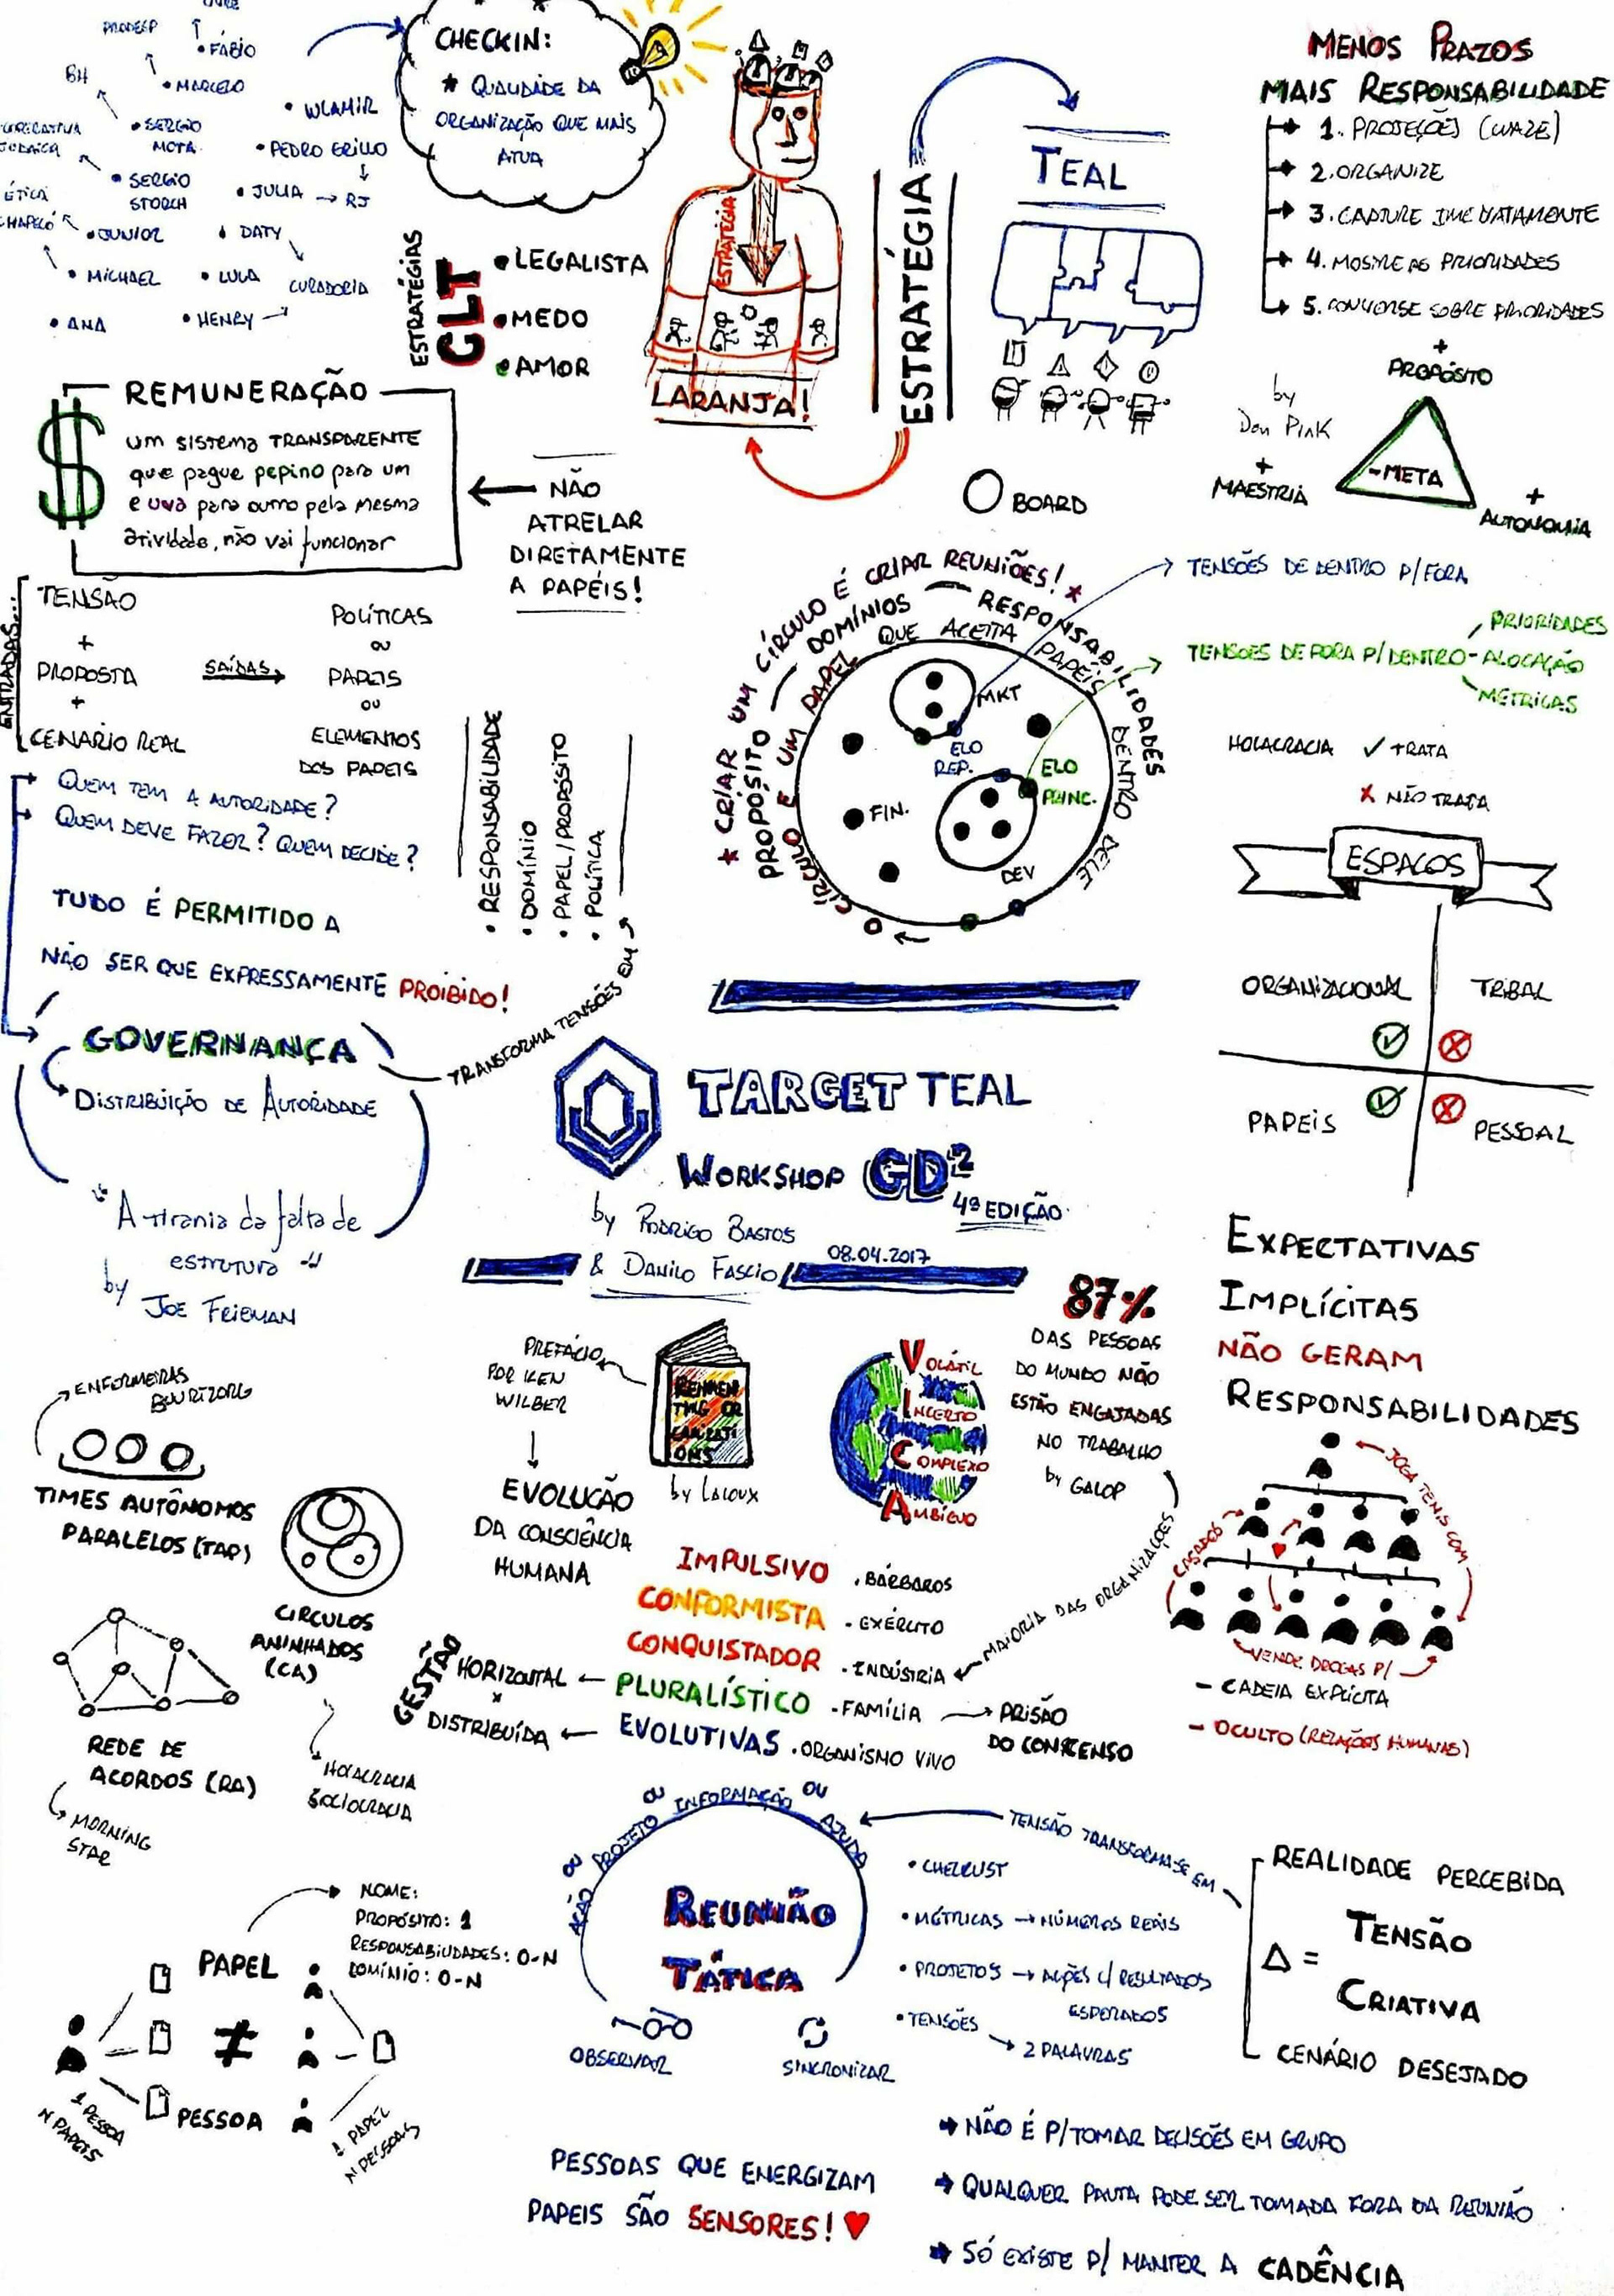 PRODESP
• FÁBIO
BH
• MARCELO
• WLAMIR
• SERGIO
MOTA
• PEDRO GRILLO
• SERGIO
STORCH
• JULIA → RJ
ÉTICA
CHAPECÓ
• JUNIOR
• DATY
• MICHAEL
• LULA
CURADORIA
• ANA
• HENRY
CHECKIN:
* QUALIDADE DA
ORGANIZAÇÃO QUE MAIS
ATUA
ESTRATÉGIAS
CLT
• LEGALISTA
• MEDO
• AMOR
ESTRATÉGIA
LARANJA!
ESTRATÉGIA
TEAL
MENOS PRAZOS
MAIS RESPONSABILIDADE
1. PROJEÇÕES (WAZE)
2. ORGANIZE
3. CAPTURE IMEDIATAMENTE
4. MOSTRE AS PRIORIDADES
5. CONVERSE SOBRE PRIORIDADES
+
PROPÓSITO
by
Dan Pink
+
MAESTRIA
- META
+
AUTONOMIA
REMUNERAÇÃO
$
um sistema TRANSPARENTE
que pague pepino para um
e uva para outro pela mesma
atividade, não vai funcionar
NÃO
ATRELAR
DIRETAMENTE
A PAPÉIS!
ENTRADAS...
TENSÃO
+
PROPOSTA
+
CENÁRIO REAL
SAÍDAS
POLÍTICAS
ou
PAPEIS
ou
ELEMENTOS
DOS PAPEIS
QUEM TEM A AUTORIDADE?
QUEM DEVE FAZER? QUEM DECIDE?
TUDO É PERMITIDO A
NÃO SER QUE EXPRESSAMENTE PROIBIDO!
GOVERNANÇA
DISTRIBUIÇÃO DE AUTORIDADE
TRANSFORMA TENSÕES EM
• RESPONSABILIDADE
• DOMÍNIO
• PAPEL/PROPÓSITO
• POLÍTICA
"A tirania da falta de
estrutura"
by
JOE FRIEMAN
BOARD
* CRIAR UM CÍRCULO É CRIAR REUNIÕES! *
PROPÓSITO — DOMÍNIOS — RESPONSABILIDADES
CÍRCULO É UM PAPEL QUE ACEITA PAPÉIS DENTRO DELE
MKT
ELO
REP.
ELO
PRINC.
FIN.
DEV
TENSÕES DE DENTRO P/ FORA
TENSOES DE FORA P/ DENTRO
- PRIORIDADES
- ALOCAÇÃO
- METRICAS
HOLACRACIA ✓ TRATA
X NÃO TRATA
ESPAÇOS
ORGANIZACIONAL
TRIBAL
PAPEIS
PESSOAL
TARGET TEAL
WORKSHOP GD²
4ª EDIÇÃO
by RODRIGO BASTOS
& DANILO FASCIO
08.04.2017
EXPECTATIVAS
IMPLÍCITAS
NÃO GERAM
RESPONSABILIDADES
JOGA TENIS COM
CASADOS
VENDE DROGAS P/
- CADEIA EXPLICITA
- OCULTO (RELAÇÕES HUMANAS)
87%
DAS PESSOAS
DO MUNDO NÃO
ESTÃO ENGAJADAS
NO TRABALHO
by GALOP
MAIORIA DAS ORGANIZAÇÕES
VOLÁTIL
INCERTO
COMPLEXO
AMBÍGUO
PREFÁCIO
POR KEN
WILBER
REINVEN
TING OR
GANIZATI
ONS
by LALOUX
EVOLUÇÃO
DA CONSCIÊNCIA
HUMANA
IMPULSIVO . BÁRBAROS
CONFORMISTA . EXÉRCITO
CONQUISTADOR . INDÚSTRIA
PLURALÍSTICO - FAMÍLIA → PRISÃO
DO CONSCENSO
EVOLUTIVAS . ORGANISMO VIVO
GESTÃO
HORIZONTAL
x
DISTRIBUÍDA
ENFERMEIRAS
BUURTZORG
TIMES AUTÔNOMOS
PARALELOS (TAP)
CIRCULOS
ANINHADOS
(CA)
HOLACRACIA
SOCIOCRACIA
REDE DE
ACORDOS (RA)
MORNING
STAR
NOME:
PROPÓSITO: 1
RESPONSABILIDADES: 0-N
DOMÍNIO: 0-N
PAPEL
≠
PESSOA
1 PESSOA
N PAPEIS
1 PAPEL
N PESSOAS
AÇÃO OU PROJETO OU INFORMAÇÃO OU AJUDA
REUNIÃO
TÁTICA
OBSERVAR
SINCRONIZAR
TENSÃO TRANSFORMA-SE EM
• CHECKLIST
• MÉTRICAS → NÚMEROS REAIS
• PROJETOS → AÇÕES C/ RESULTADOS
ESPERADOS
• TENSÕES
→ 2 PALAVRAS
REALIDADE PERCEBIDA
Δ = TENSÃO
CRIATIVA
CENÁRIO DESEJADO
PESSOAS QUE ENERGIZAM
PAPEIS SÃO SENSORES!
→ NÃO É P/ TOMAR DECISÕES EM GRUPO
→ QUALQUER PAUTA PODE SER TOMADA FORA DA REUNIÃO
→ SÓ EXISTE P/ MANTER A CADÊNCIA